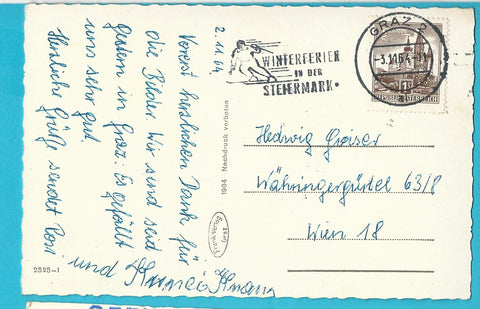 2.11.64
Vorerst herzlichen Dank für
die Bilder. Wir sind seit
Gestern in Graz. Es gefällt
uns sehr gut.
Herzliche Grüße sendet
und
2525-1
1964. Nachdruck verboten
Frank-Verlag
Graz
WINTERFERIEN
IN DER
STEIERMARK
GRAZ 2
-3.11.64
REPUBLIK ÖSTERREICH
Hedwig
Währingergürtel 63/8
Wien 18